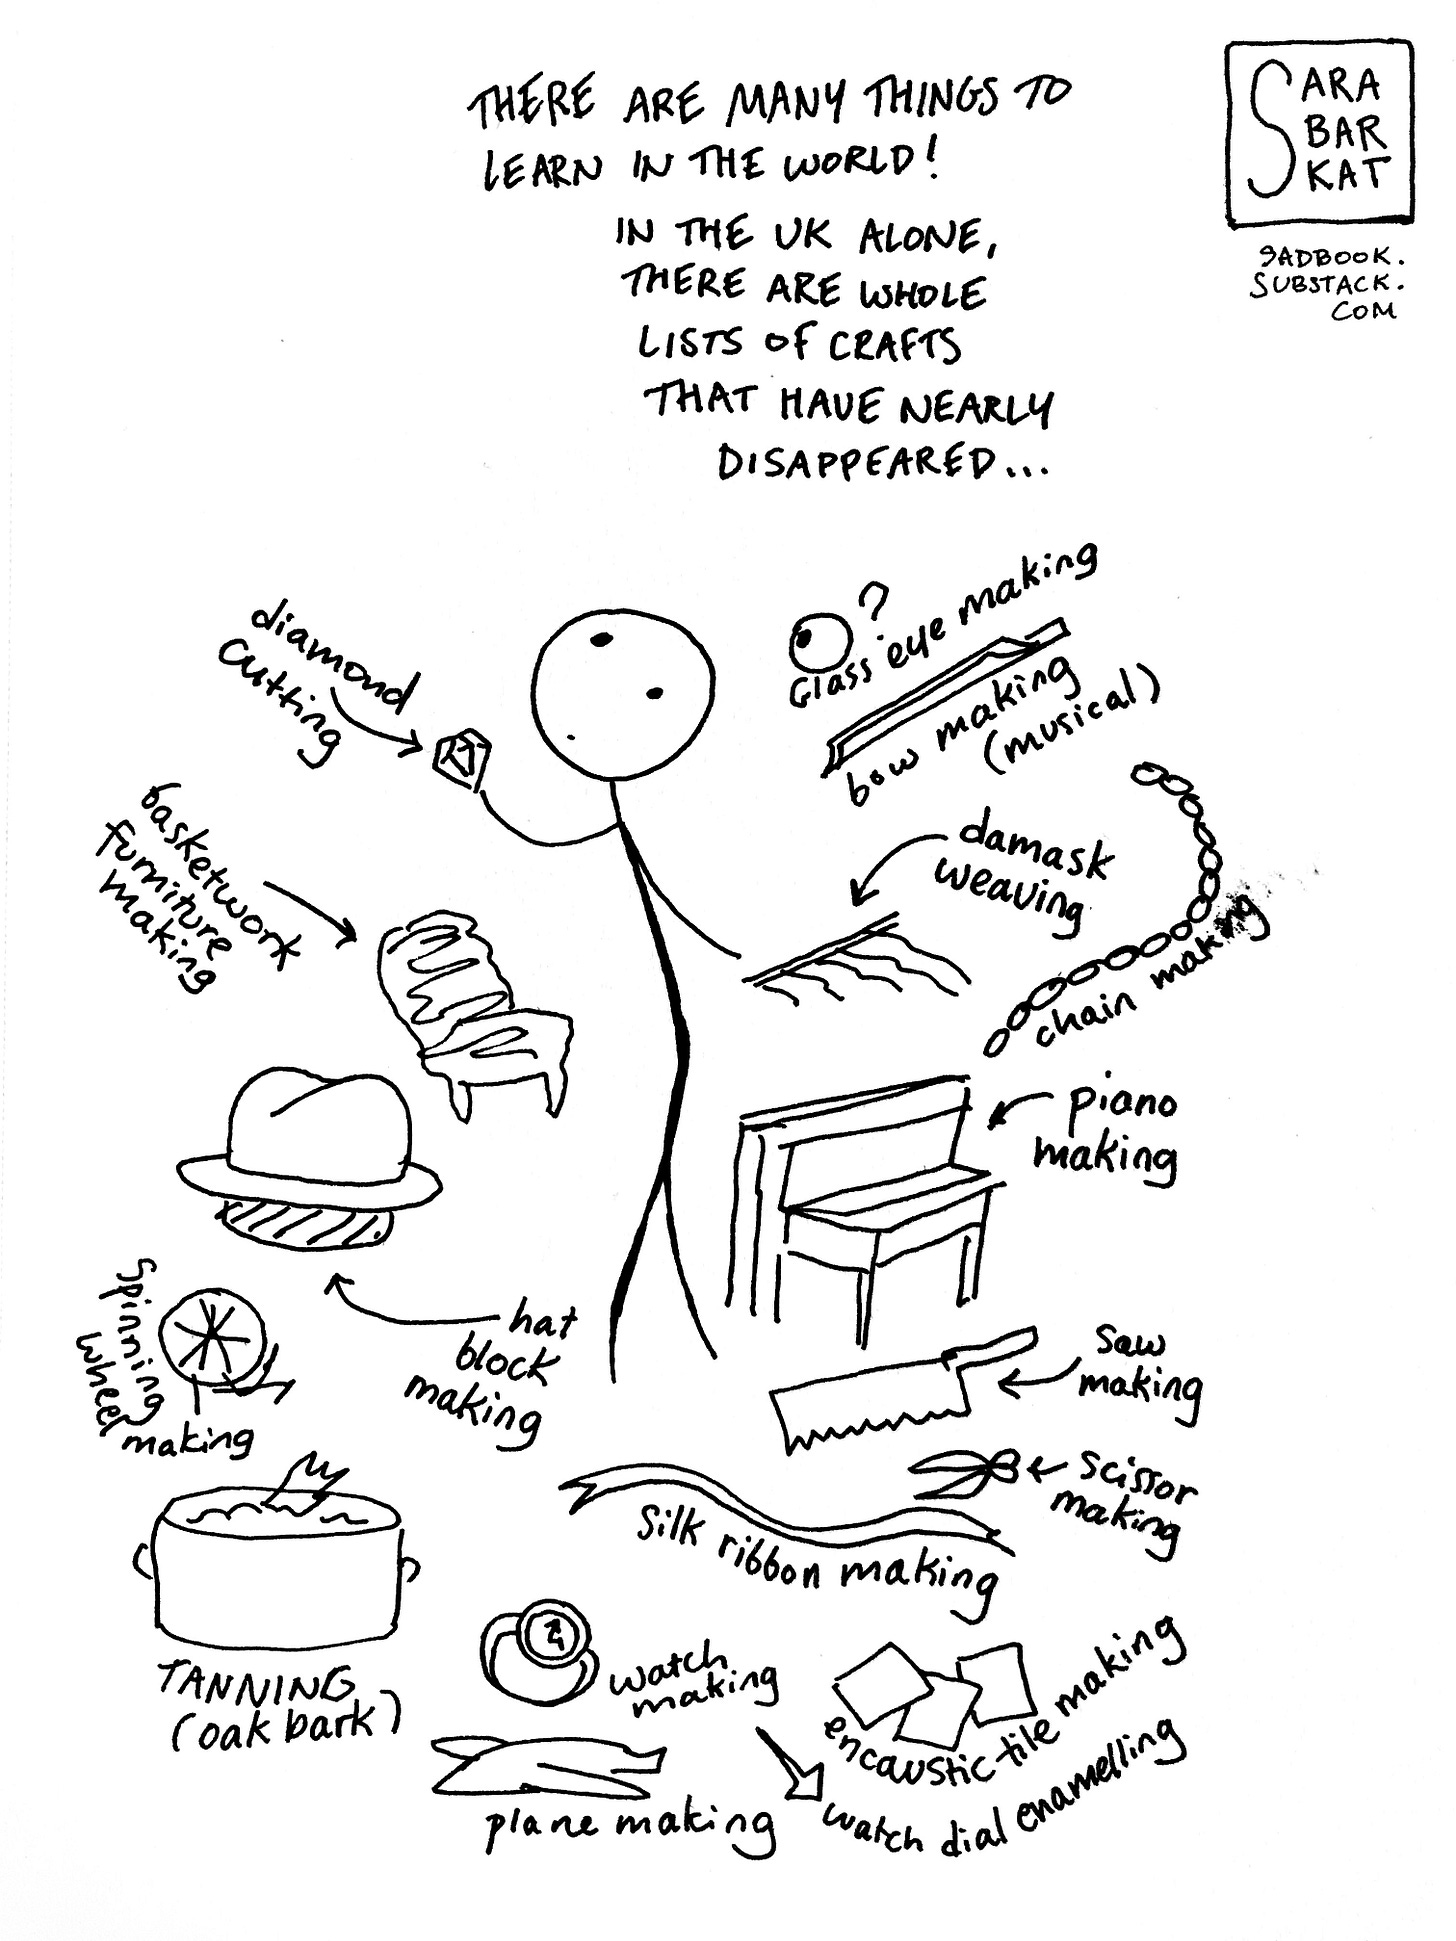 THERE ARE MANY THINGS TO
LEARN IN THE WORLD!
IN THE UK ALONE,
THERE ARE WHOLE
LISTS OF CRAFTS
THAT HAVE NEARLY
DISAPPEARED...
SARA
BAR
KAT
SADBOOK.
SUBSTACK.
COM
diamond
cutting
?
Glass eye making
bow making
(musical)
basketwork
furniture
making
damask
weaving
chain making
piano
making
hat
block
making
spinning
wheel
making
saw
making
scissor
making
silk ribbon making
TANNING
(oak bark)
watch
making
encaustic tile making
plane making
watch dial enamelling